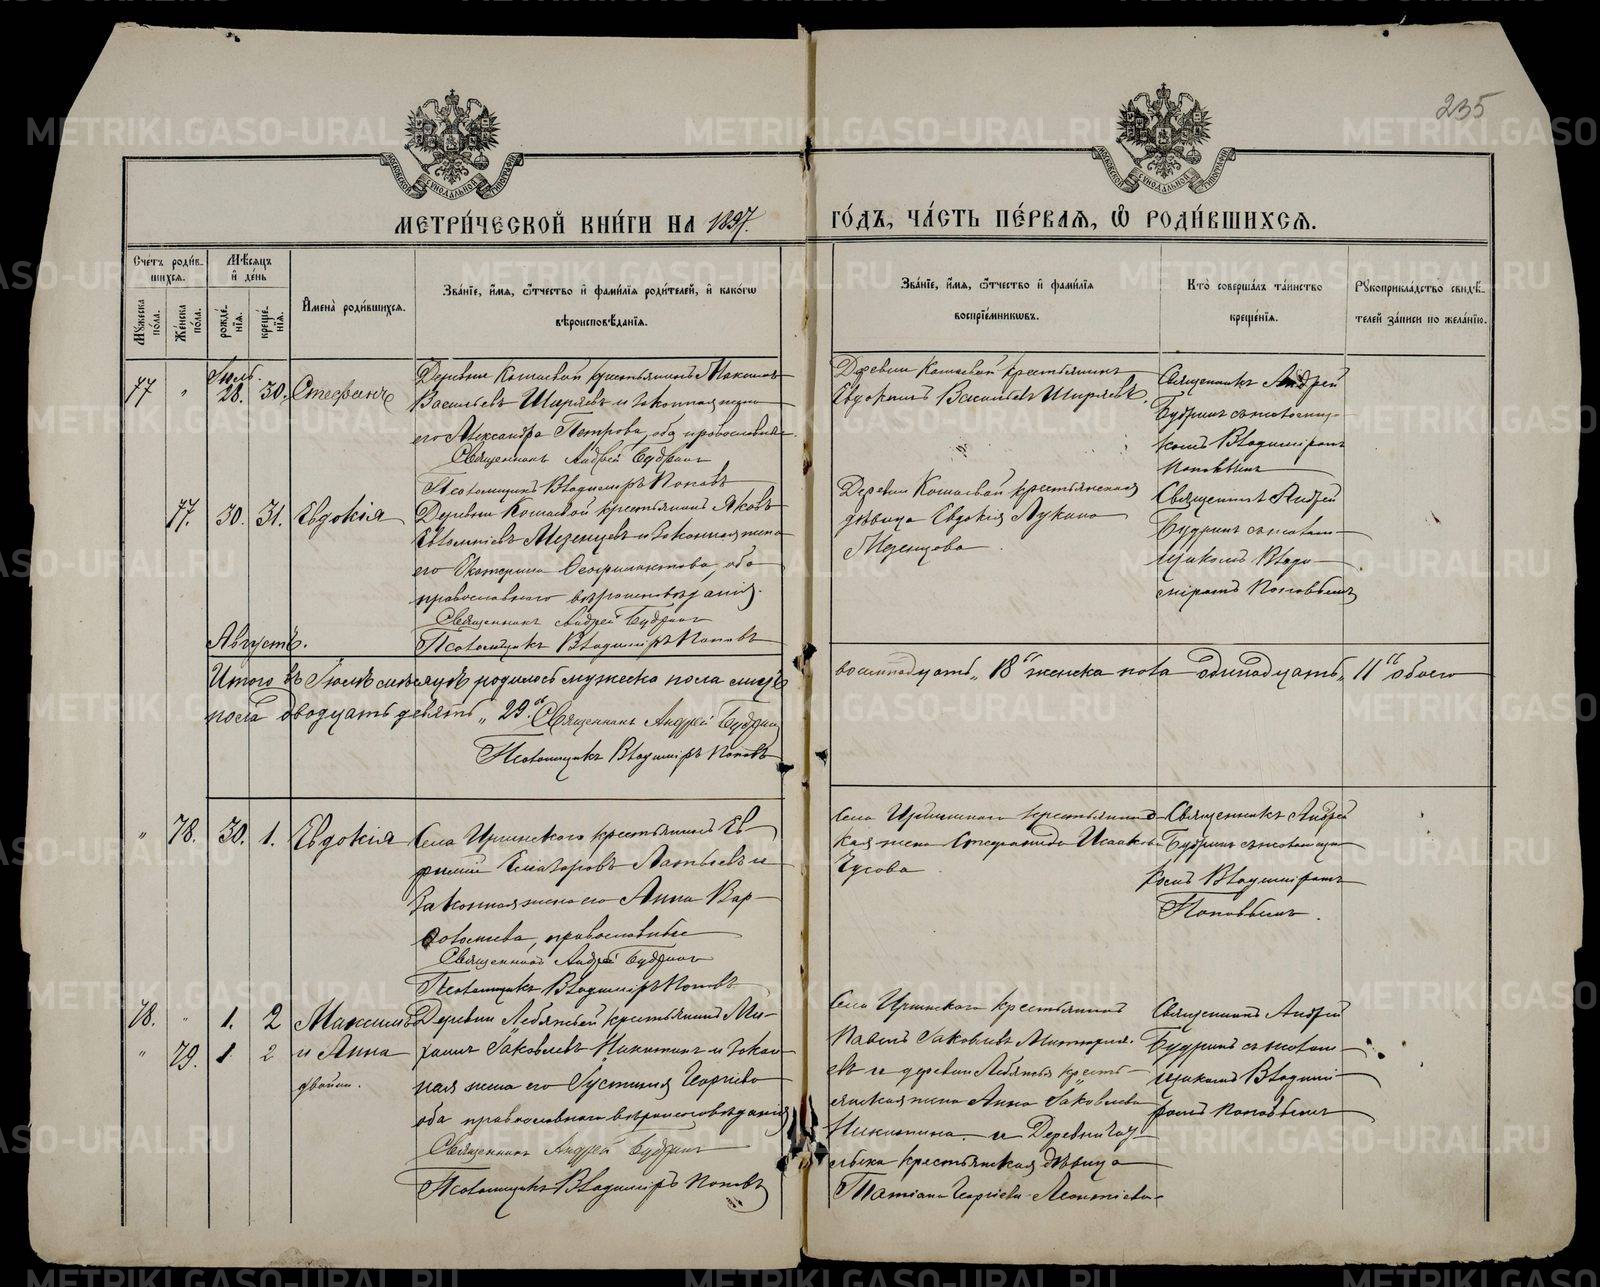 235
МЕТРИ́ЧЕСКОЙ КНИ́ГИ НА 1897.
ГО́ДЪ, ЧА́СТЬ ПЕ́РВАѦ, Ѡ҆ РОДИ́ВШИХСѦ.
Сче́тъ роди́в-
шихсѧ.
Мꙋжеска по́ла.
Же́нска по́ла.
Мѣсѧцъ
и҆ де́нь
рожде́нїѧ.
креще́нїѧ.
И҆мена̀ роди́вшихсѧ.
Зва́нїе, и҆́мѧ, ѻ҆́тчество и҆ фами́лїѧ роди́телей, и҆ како́гѡ
вѣроисповѣ́данїѧ.
Зва́нїе, и҆́мѧ, ѻ҆́тчество и҆ фами́лїѧ
воспрїе́мникѡвъ.
Кто̀ соверша́лъ та́инство
креще́нїѧ.
Рꙋкоприкла́дство свидѣ́-
телей за́писи по жела́нїю.
Іюль.
77 " 28. 30. Стефанъ
Деревни Кошаевой крестьянинъ Максимъ
Васильевъ Ширяевъ и законная жена
его Александра Петрова, оба православные.
Священникъ Андрей Будринъ
Псаломщикъ Владимиръ Поповъ
Деревни Кошаевой крестьянинъ
Евдокимъ Васильевъ Ширяевъ.
Священникъ Андрей
Будринъ съ псаломщи-
комъ Владиміромъ
Поповымъ
77. 30. 31. Евдокія
Деревни Кошаевой крестьянинъ Яковъ
Евтихіевъ Мезенцевъ и законная жена
его Екатерина Феофилактова, оба
православнаго вѣроисповѣданія.
Священникъ Андрей Будринъ
Псаломщикъ Владиміръ Поповъ
Деревни Кошаевой крестьянская
дѣвица Евдокія Лукина
Мезенцова.
Священникъ Андрей
Будринъ съ псалом-
щикомъ Влади-
міромъ Поповымъ
Августъ.
Итого въ Іюлѣ мѣсяцѣ родилось мужеска пола
восемнадцать "18" женска пола одинадцать "11" обоего
пола двадцать девять "29." Священникъ Андрей Будринъ
Псаломщикъ Владиміръ Поповъ
" 78. 30. 1. Евдокія
Села Иргинского крестьянинъ Ев-
фимій Елизаровъ Латышевъ и
законная жена его Анна Вар-
фоломеева, православные
Священникъ Андрей Будринъ
Псаломщикъ Владиміръ Поповъ
Села Иргинского крестьянс-
кая жена Степанида Исаакова
Чусова.
Священникъ Андрей
Будринъ съ псаломщи-
комъ Владиміромъ
Поповымъ.
78. " 1. 2 Максимъ
" 79. 1 2 и Анна
двойни.
Деревни Лебяжьей крестьянинъ Ми-
хаилъ Іаковлевъ Никитинъ и закон-
ная жена его Іустинія Георгіева
оба православнаго вѣроисповѣданія
Священникъ Андрей Будринъ
Псаломщикъ Владиміръ Поповъ
Села Иргинского крестьянинъ
Павелъ Іаковлевъ
и деревни Лебяжья кресть-
янская жена Анна Іаковлева
Никитина. и Деревни
крестьянская дѣвица
Татіана Георгіева Леонтіева
Священникъ Андрей
Будринъ съ псалом-
щикомъ Владимі-
ромъ Поповымъ